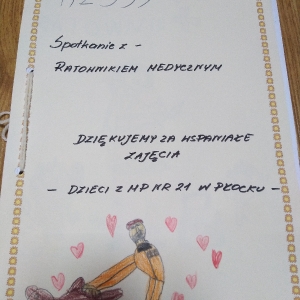 Spotkanie z -
RATOWNIKIEM MEDYCZNYM
DZIĘKUJEMY ZA WSPANIAŁE
ZAJĘCIA
- DZIECI Z MP NR 21 W PŁOCKU -